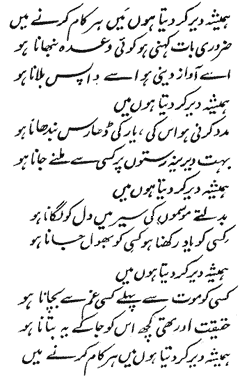 ہمیشہ دیر کر دیتا ہوں میں ہر کام کرنے میں
ضروری بات کہنی ہو کوئی وعدہ نبھانا ہو
اسے آواز دینی ہو اسے واپس بلانا ہو
ہمیشہ دیر کر دیتا ہوں میں
مدد کرنی ہو اس کی، یار کی ڈھارس بندھانا ہو
بہت دیرینہ رستوں پر کسی سے ملنے جانا ہو
ہمیشہ دیر کر دیتا ہوں میں
بدلتے موسموں کی سیر میں دل کو لگانا ہو
کسی کو یاد رکھنا ہو کسی کو بھول جانا ہو
ہمیشہ دیر کر دیتا ہوں میں
کسی کو موت سے پہلے کسی غم سے بچانا ہو
حقیقت اور تھی کچھ اس کو جا کے یہ بتانا ہو
ہمیشہ دیر کر دیتا ہوں میں ہر کام کرنے میں